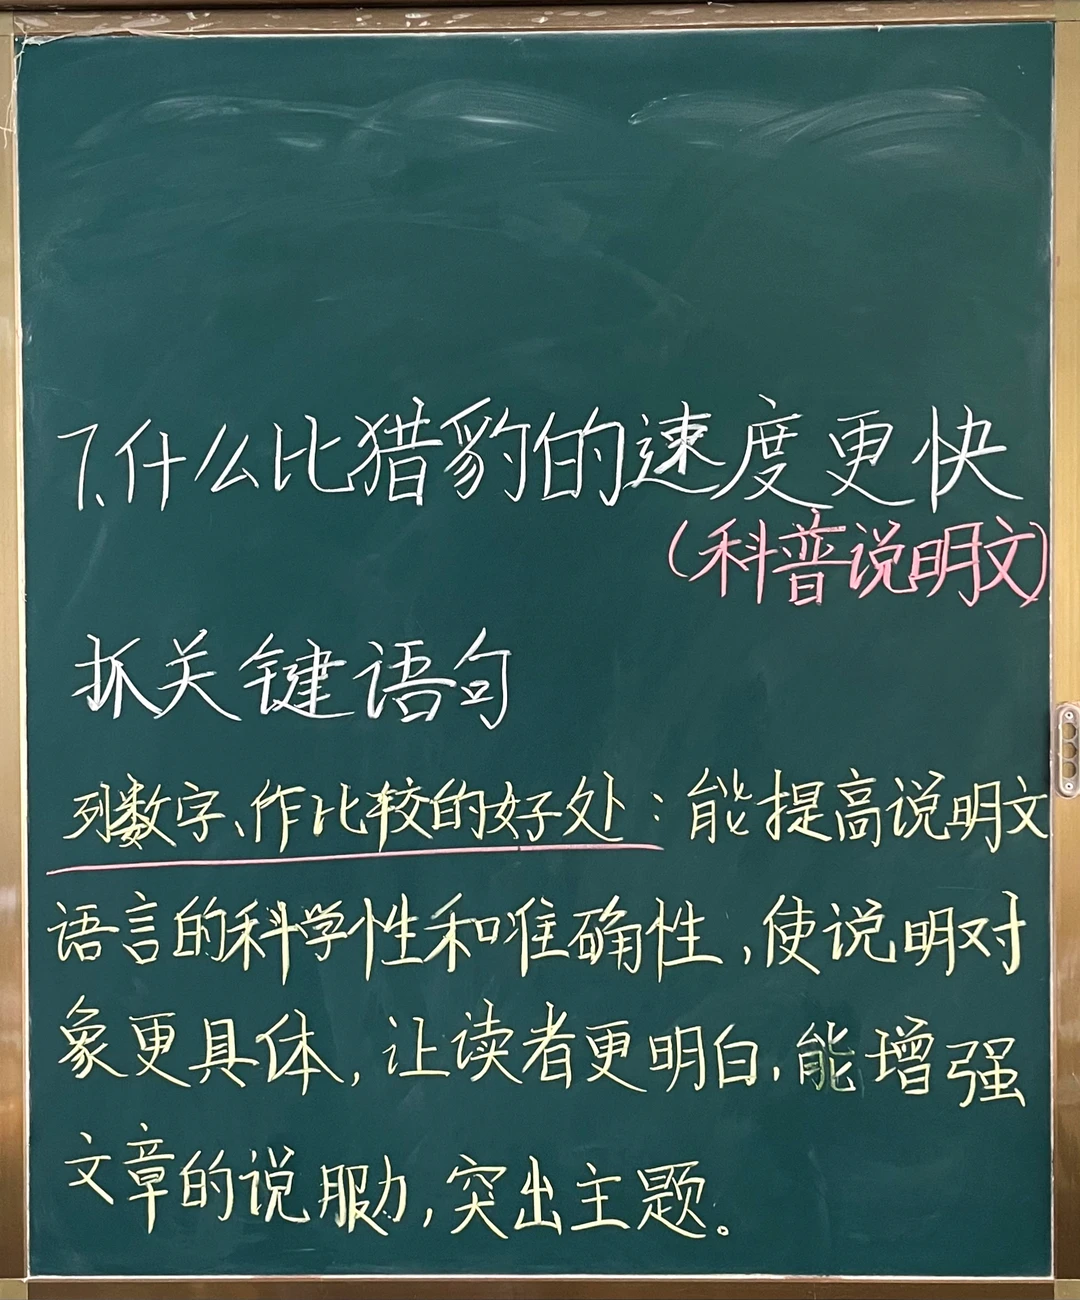 7.什么比猎豹的速度更快
(科普说明文)
抓关键语句
列数字、作比较的好处：能提高说明文
语言的科学性和准确性,使说明对
象更具体,让读者更明白,能增强
文章的说服力,突出主题。